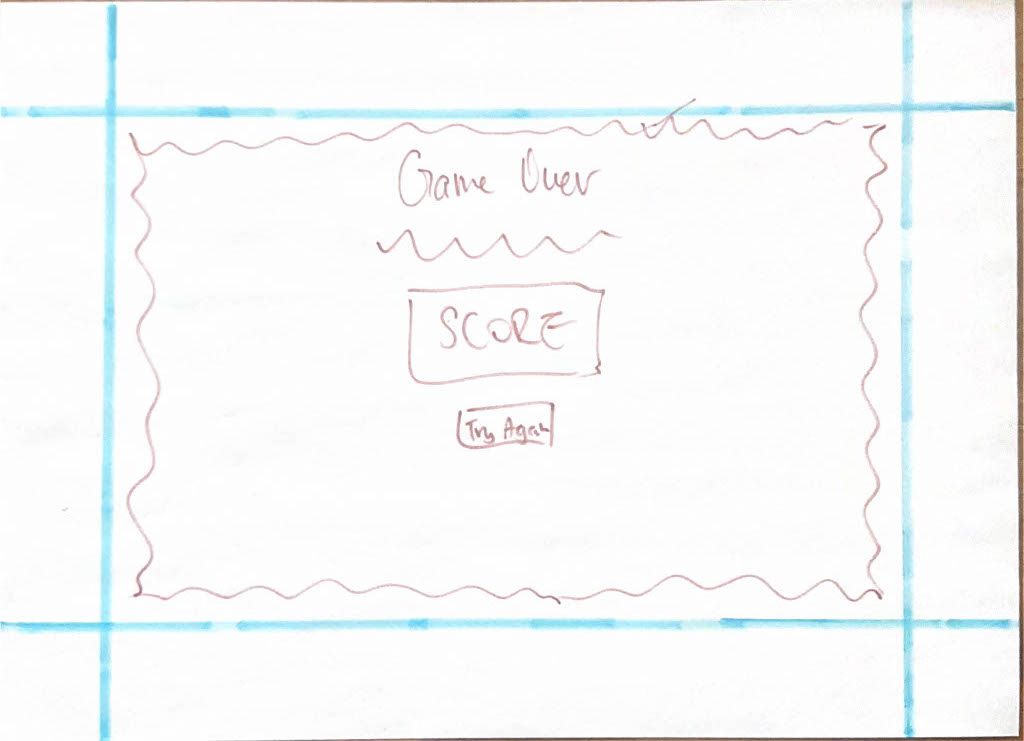 Game Over
SCORE
Try Again